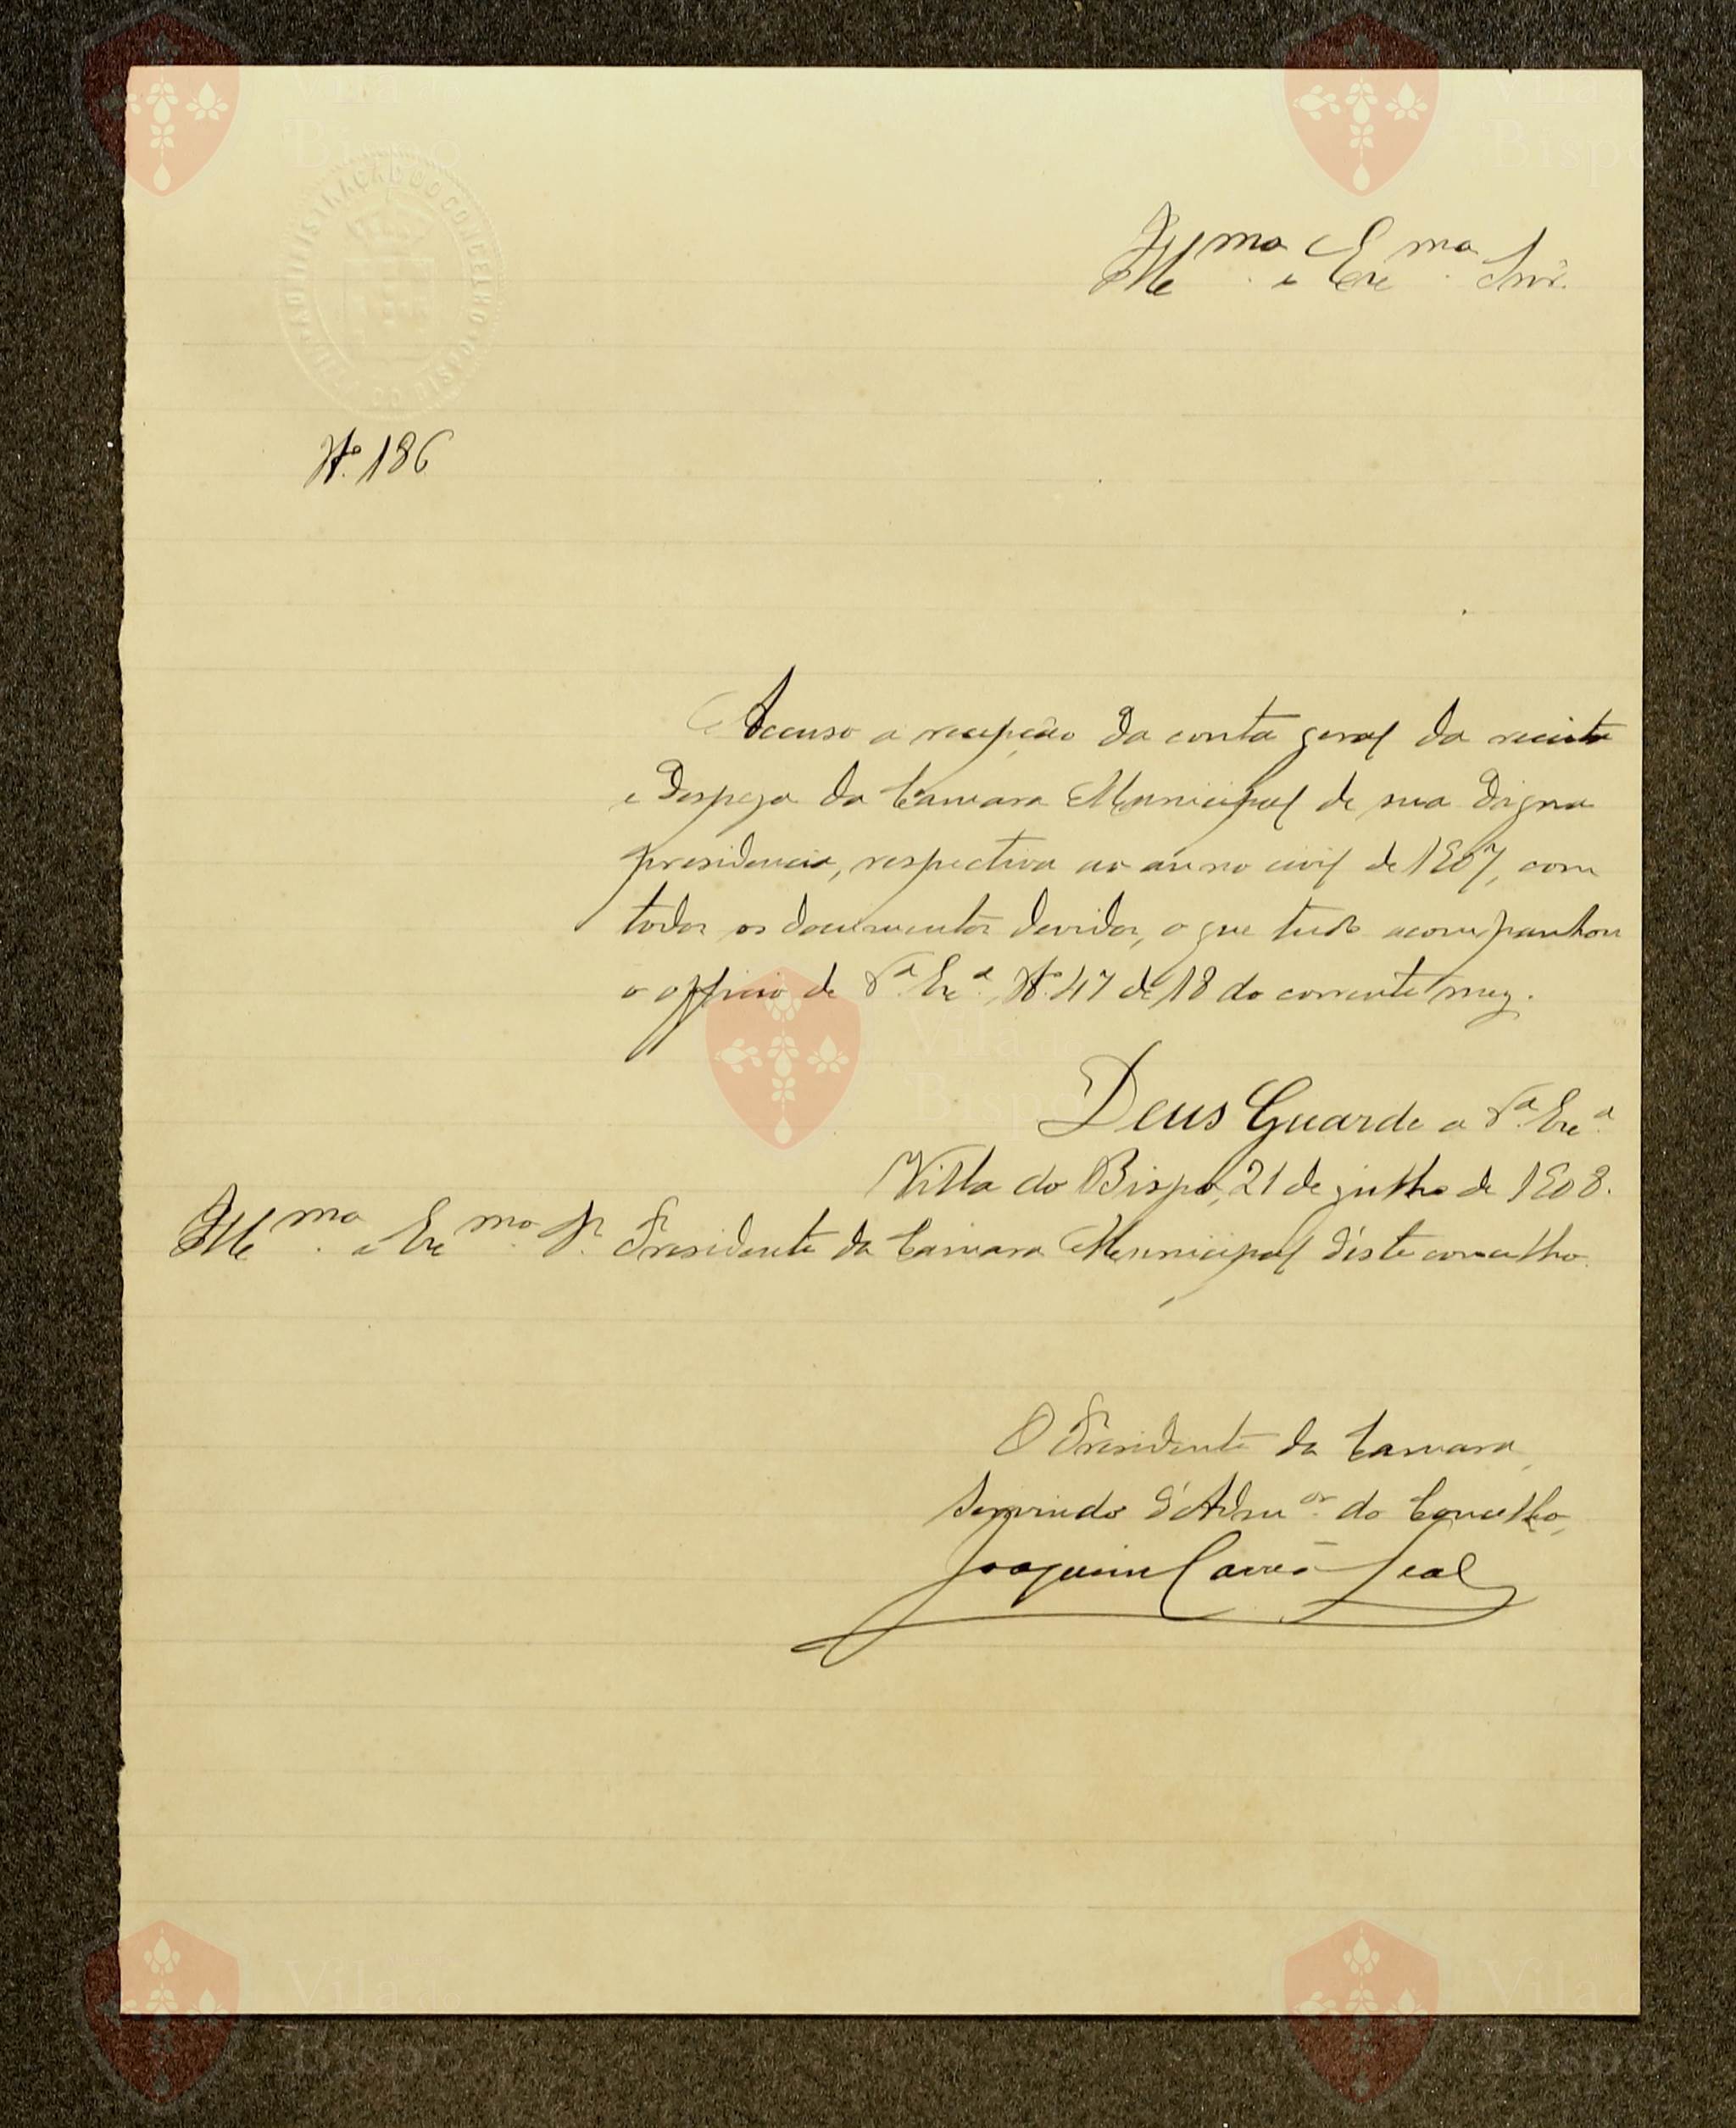 Illmo. e Exmo. Snr.
ADMINISTRAÇÃO DO CONCELHO
No. 186
Accuso a recepção da conta geral da receita
e despeza da Camara Municipal de sua digna
presidencia, respectiva ao anno civil de 1907, com
todos os documentos devidos, o que tudo acompanhou
o officio de Va. Exa., No. 47 de 18 do corrente mez.
Deus Guarde a Va. Exa.
Villa do Bispo, 21 de julho de 1908.
Illmo. e Exmo. Sr. Presidente da Camara Municipal d'este concelho.
O Presidente da Camara,
servindo d'Admor. do Concelho,
Joaquim Leal
Vila do
Bispo